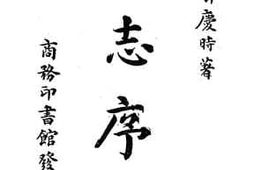 慶時著
志序
商務印書館發